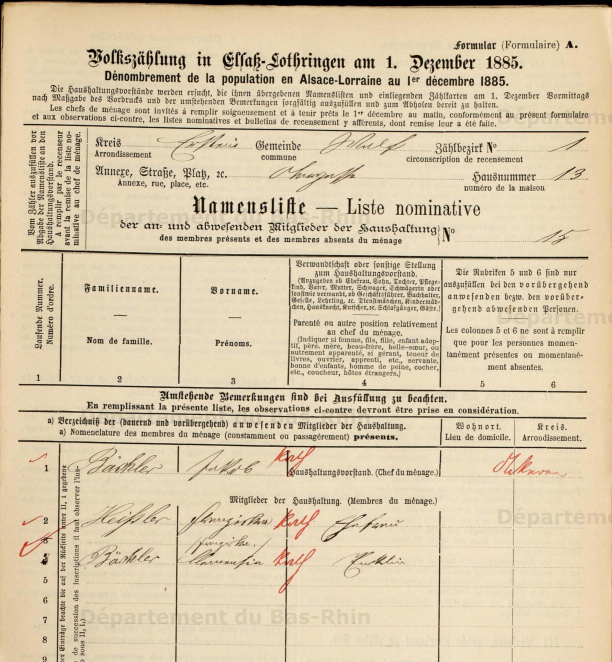 Formular (Formulaire) A.
Volkszählung in Elsaß-Lothringen am 1. Dezember 1885.
Dénombrement de la population en Alsace-Lorraine au 1er décembre 1885.
Die Haushaltungsvorstände werden ersucht, die ihnen übergebenen Namenslisten und einliegenden Zählkarten am 1. Dezember Vormittags
nach Maßgabe des Vordrucks und der umstehenden Bemerkungen sorgfältig auszufüllen und zum Abholen bereit zu halten.
Les chefs de ménage sont invités à remplir soigneusement et à tenir prêts le 1er décembre au matin, conformément au présent formulaire
et aux observations ci-contre, les listes nominatives et bulletins de recensement y afférents, dont remise leur a été faite.
Vom Zähler auszufüllen vor
Abgabe der Namensliste an den
Haushaltungsvorstand.
A remplir par le recenseur
avant la remise de la liste no-
minative au chef de ménage.
Kreis Erstein Gemeinde Zählbezirk No 1
Arrondissement commune circonscription de recensement
Annexe, Straße, Platz, 2c. Hausnummer 13
Annexe, rue, place, etc. numéro de la maison
Namensliste — Liste nominative
der an- und abwesenden Mitglieder der Haushaltung No 15
des membres présents et des membres absents du ménage
Laufende Nummer.
Numéro d'ordre.
1
Familienname.
Nom de famille.
2
Vorname.
Prénoms.
3
Verwandtschaft oder sonstige Stellung
zum Haushaltungsvorstand.
(Anzugeben ob Ehefrau, Sohn, Tochter, Pflege-
kind, Vater, Mutter, Schwager, Schwägerin oder
sonstwie verwandt, ob Geschäftsführer, Buchhalter,
Geselle, Lehrling, 2c. Dienstmädchen, Kindermäd-
chen, Hausknecht, Kutscher, 2c. Schlafgänger, Gäste.)
Parenté ou autre position relativement
au chef du ménage.
(Indiquer si femme, fils, fille, enfant adop-
tif, père, mère, beau-frère, belle-sœur, ou
autrement apparenté, si gérant, teneur de
livres, ouvrier, apprenti, etc., servante,
bonne d'enfants, homme de peine, cocher,
etc., coucheur, hôtes étrangers.)
4
Die Rubriken 5 und 6 sind nur
auszufüllen bei den vorübergehend
anwesenden bezw. den vorüber-
gehend abwesenden Personen.
Les colonnes 5 et 6 ne sont à remplir
que pour les personnes momen-
tanément présentes ou momentané-
ment absentes.
5 6
Umstehende Bemerkungen sind bei Ausfüllung zu beachten.
En remplissant la présente liste, les observations ci-contre devront être prise en considération.
a) Verzeichniß der (dauernd und vorübergehend) anwesenden Mitglieder der Haushaltung.
a) Nomenclature des membres du ménage (constamment ou passagèrement) présents.
Wohnort. Kreis.
Lieu de domicile. Arrondissement.
1 Bächler Jakob kath Haushaltungsvorstand. (Chef du ménage.)
Mitglieder der Haushaltung. (Membres du ménage.)
2 Heißler Franziska kath Ehefrau
3
4 Bächler kath
5
6
7
8
9
Département du Bas-Rhin